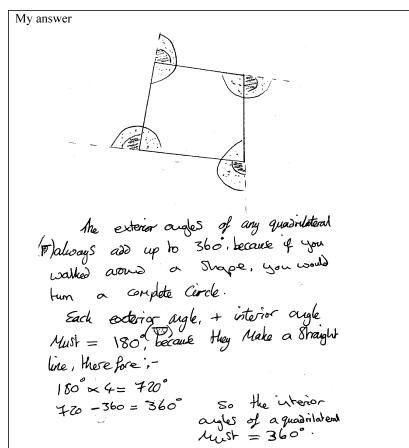 My answer
The exterior angles of any quadrilateral
always add up to 360°, because if you
walked around a shape, you would
turn a complete circle.
Each exterior angle, + interior angle
Must = 180°, because they make a straight
line, therefore;-
180° × 4 = 720°
720 - 360 = 360°
So the interior
angles of a quadrilateral
must = 360°.